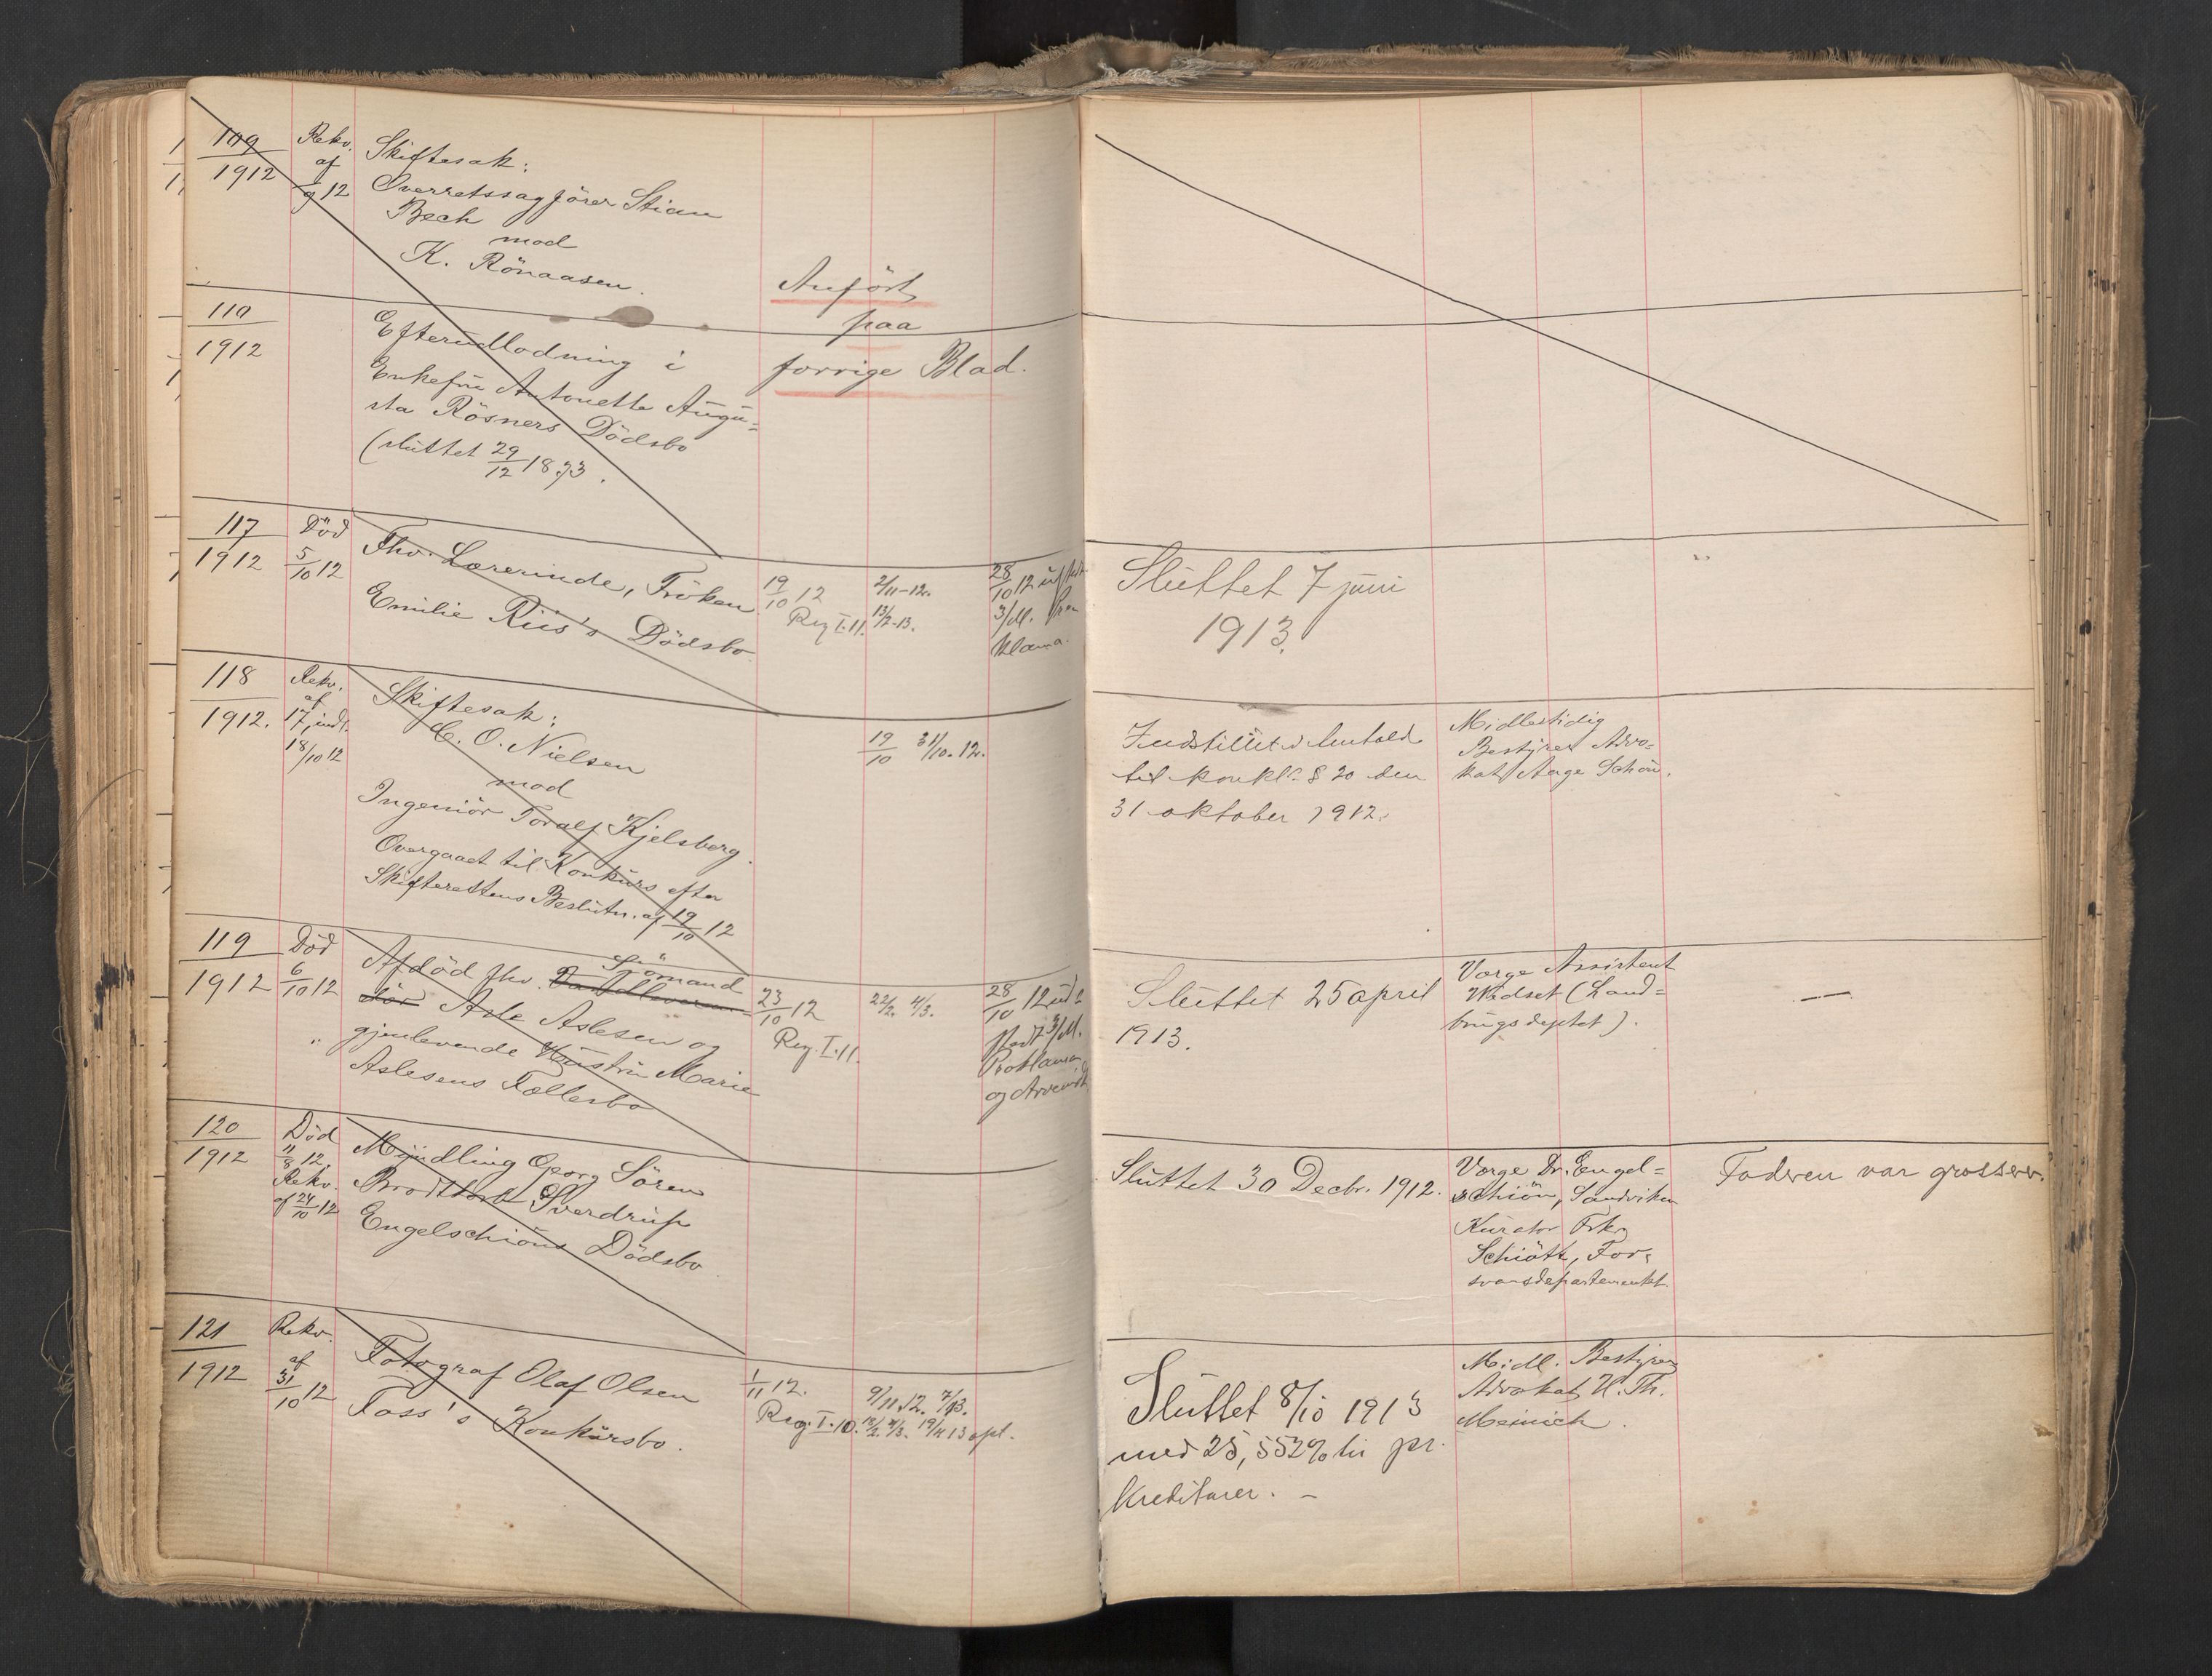 109
1912
Rekv.
af
9/12
Skiftesak:
Overretssagfører Stian
Bech
mod
K. Rönaasen.
Anført
paa
forrige Blad.
110
1912
Efterudlodning i
Enkefru Antonette Augu=
sta Rösners Dödsbo
(sluttet 29/12 1873.
117
1912
Död
5/10 12
Fhv. Lærerinde, Fröken
Emilie Riis's Dödsbo
19/10 12
Reg I.11.
2/11-12.
13/2-13.
28/10 12
3/M.
klama.
Sluttet 7 juni
1913.
118
1912.
Rekv.
af
17, indk.
18/10 12
Skiftesak:
C. O. Nielsen
mod
Ingeniör Toralf Kjelsberg.
Overgaaet til Konkurs efter
Skifterettens Beslutn. af 19/10 12
19/10 31/10. 12.
Indstillet i henhold
til konkl. § 20 den
31 oktober 1912.
Midlertidig
Bestyrer Advo=
kat Aage Schou.
119
1912
Död
6/10 12
Afdöd fhv. Sjömand
Asle Aslesen og
gjenlevende Hustru Marie
Aslesens Fællesbo
23/10 12
Reg. I.11.
22/2. 4/3.
28/10 12 ud=
stedt 3/M.
Proklama
og
Sluttet 25 april
1913.
Værge Assistent
(Land=
brugsdeptet).
—
120
1912
Död
11/8 12.
Rekv.
af 24/10 12
Myndling Georg Sören
Brodtkorb Sverdrup
Engelschiöns Dödsbo
Sluttet 30 Decbr. 1912.
Værge Dr. Engel=
schiön, Sandviken
Kurator Frk.
Schiött, For=
svarsdepartementet.
Faderen var grosserer.
121
1912
Rekv.
af
31/10 12
Fotograf Olaf Olsen
Foss's Konkursbo.
1/11 12.
Reg. I.10.
9/11.12. 7/1 13.
18/2. 4/3. 19/4 13
Sluttet 8/10 1913
med 25,552% til pr.
kreditorer. —
Midl. Bestyrer
Advokat H. Th.
Meinich.